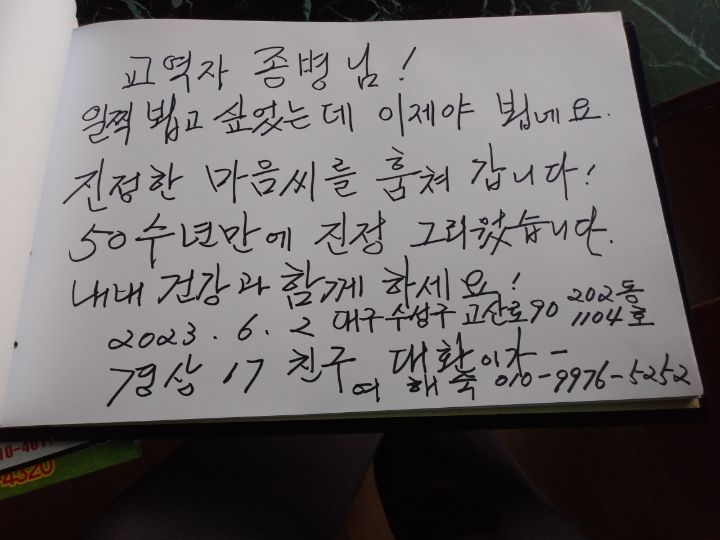 교역자 종병님!
일찍 뵙고 싶었는데 이제야 뵙네요.
진정한 마음씨를 훔쳐 갑니다!
50수년만에 진정 그리웠습니다.
내내 건강과 함께 하세요!
2023. 6. 2 대구 수성구 고산로90 202동 1104호
경삼 17 친구 대환이가 -
여 해숙 010-9976-5252
4320